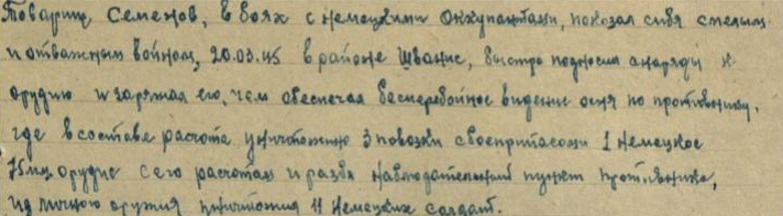 Товарищ Семенов, в боях с немецкими оккупантами, показал себя смелым
и отважным войном, 20.03.45 в районе Шванис, быстро подносил снаряды к
орудию и заряжая его, чем обеспечал бесперебойное видение огня по противнику,
где в составе расчота уничтожено 3 повозки с боеприпасами 1 немецкое
75мм орудие с его расчотам и разби наблюдательный пункт противника,
из личного оружия уничтожил 11 немецких солдат.